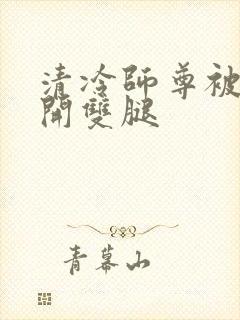 清冷師尊被
開雙腿
青幕山